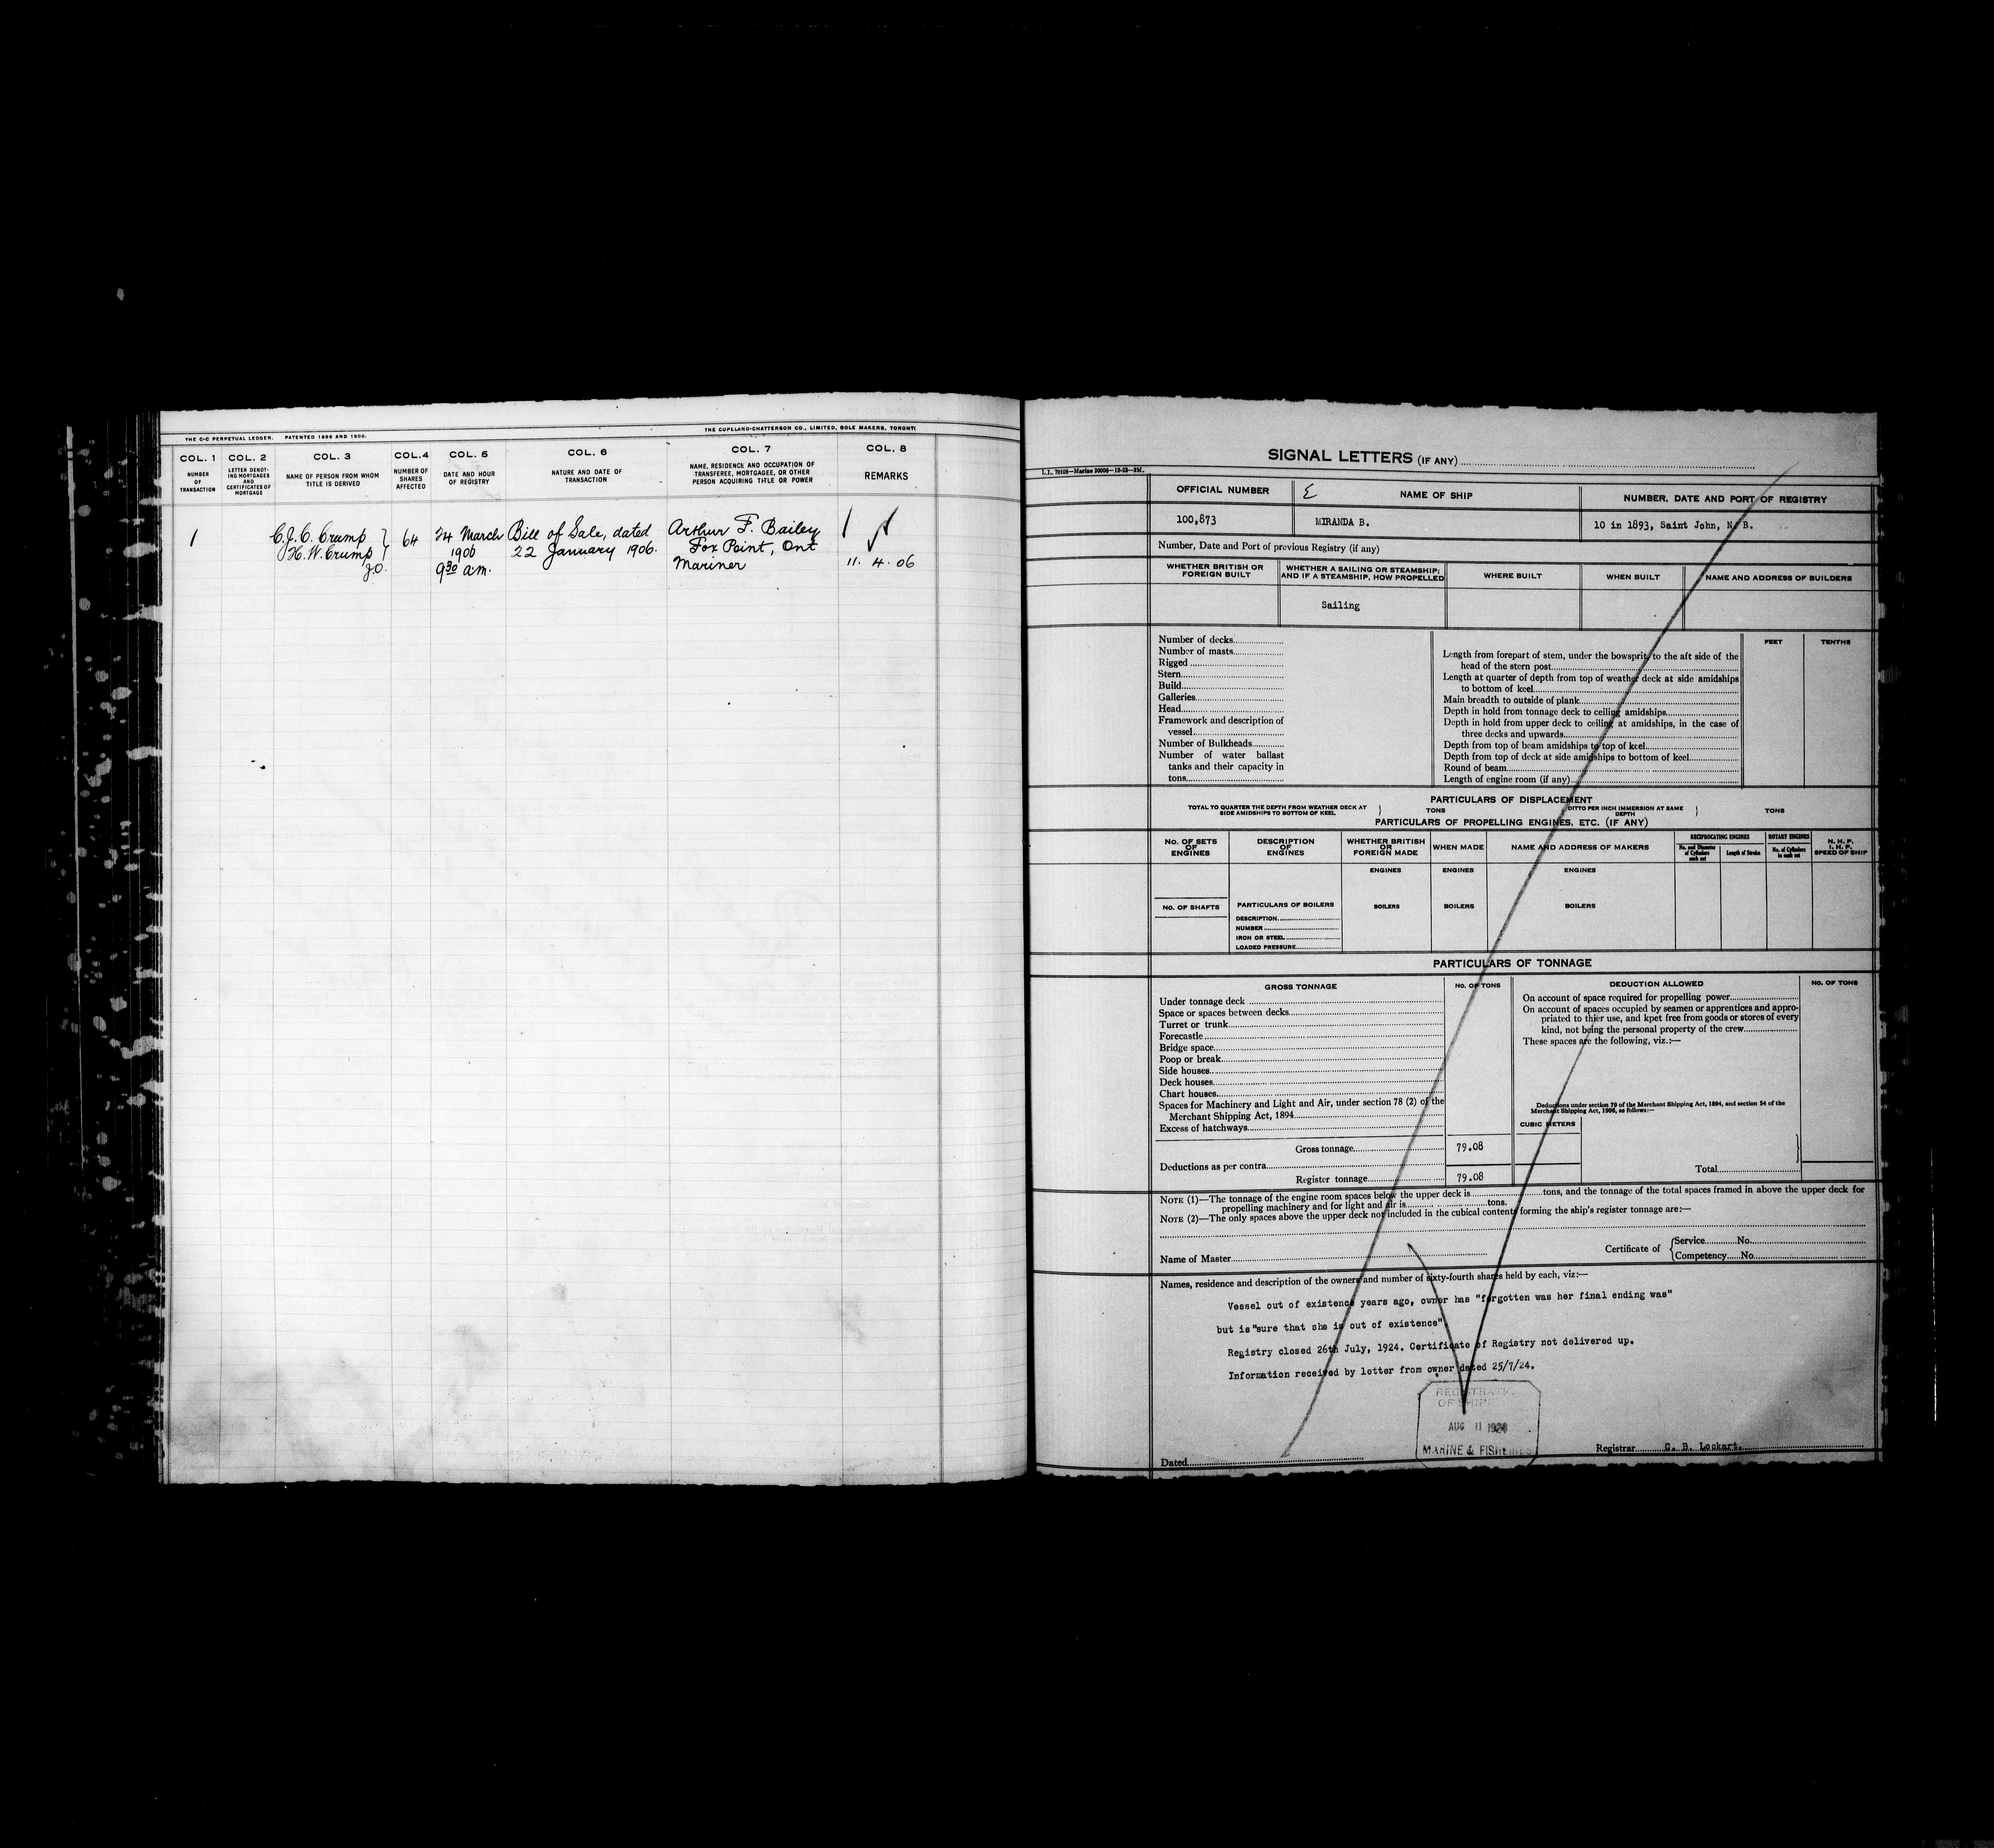 THE C-C PERPETUAL LEDGER. PATENTED 1896 AND 1900. THE COPELAND-CHATTERSON CO., LIMITED, SOLE MAKERS, TORONTO
COL. 1 COL. 2 COL. 3 COL. 4 COL. 5 COL. 6 COL. 7 COL. 8
NUMBER OF TRANSACTION
LETTER DENOTING MORTGAGES AND CERTIFICATES OF MORTGAGE
NAME OF PERSON FROM WHOM TITLE IS DERIVED
NUMBER OF SHARES AFFECTED
DATE AND HOUR OF REGISTRY
NATURE AND DATE OF TRANSACTION
NAME, RESIDENCE AND OCCUPATION OF TRANSFEREE, MORTGAGEE, OR OTHER PERSON ACQUIRING TITLE OR POWER
REMARKS
1 C.J.C. Crump } 64 24 March Bill of Sale, dated Arthur F. Bailey
H.W. Crump 1906 22 January 1906. Fox Point, Ont
J.O. 9 30 a.m. Mariner 11. 4. 06
SIGNAL LETTERS (IF ANY)
L.L. 70105—Marine 20006—12-23—3M.
OFFICIAL NUMBER NAME OF SHIP NUMBER, DATE AND PORT OF REGISTRY
100,873 MIRANDA B. 10 in 1893, Saint John, N. B.
Number, Date and Port of previous Registry (if any)
WHETHER BRITISH OR FOREIGN BUILT
WHETHER A SAILING OR STEAMSHIP; AND IF A STEAMSHIP, HOW PROPELLED
WHERE BUILT
WHEN BUILT
NAME AND ADDRESS OF BUILDERS
Sailing
Number of decks
Number of masts
Rigged
Stern
Build
Galleries
Head
Framework and description of
vessel
Number of Bulkheads
Number of water ballast
tanks and their capacity in
tons
FEET TENTHS
Length from forepart of stem, under the bowsprit, to the aft side of the
head of the stern post
Length at quarter of depth from top of weather deck at side amidships
to bottom of keel
Main breadth to outside of plank
Depth in hold from tonnage deck to ceiling amidships
Depth in hold from upper deck to ceiling at amidships, in the case of
three decks and upwards
Depth from top of beam amidships to top of keel
Depth from top of deck at side amidships to bottom of keel
Round of beam
Length of engine room (if any)
PARTICULARS OF DISPLACEMENT
TOTAL TO QUARTER THE DEPTH FROM WEATHER DECK AT SIDE AMIDSHIPS TO BOTTOM OF KEEL } TONS
DITTO PER INCH IMMERSION AT SAME DEPTH } TONS
PARTICULARS OF PROPELLING ENGINES, ETC. (IF ANY)
No. OF SETS OF ENGINES
DESCRIPTION OF ENGINES
WHETHER BRITISH OR FOREIGN MADE
WHEN MADE
NAME AND ADDRESS OF MAKERS
RECIPROCATING ENGINES
No. and Diameter of Cylinders each set
Length of Stroke
ROTARY ENGINES
No. of Cylinders in each set
N. H. P.
I. H. P.
SPEED OF SHIP
ENGINES ENGINES ENGINES
No. OF SHAFTS PARTICULARS OF BOILERS BOILERS BOILERS BOILERS
DESCRIPTION
NUMBER
IRON OR STEEL
LOADED PRESSURE
PARTICULARS OF TONNAGE
GROSS TONNAGE No. OF TONS DEDUCTION ALLOWED No. OF TONS
Under tonnage deck
Space or spaces between decks
Turret or trunk
Forecastle
Bridge space
Poop or break
Side houses
Deck houses
Chart houses
Spaces for Machinery and Light and Air, under section 78 (2) of the
Merchant Shipping Act, 1894
Excess of hatchways
Gross tonnage 79.08
Deductions as per contra
Register tonnage 79.08
On account of space required for propelling power
On account of spaces occupied by seamen or apprentices and appro-
priated to thier use, and kpet free from goods or stores of every
kind, not being the personal property of the crew
These spaces are the following, viz.:—
Deductions under section 79 of the Merchant Shipping Act, 1894, and section 54 of the
Merchant Shipping Act, 1906, as follows:—
CUBIC METERS
Total
NOTE (1)—The tonnage of the engine room spaces below the upper deck is tons, and the tonnage of the total spaces framed in above the upper deck for
propelling machinery and for light and air is tons.
NOTE (2)—The only spaces above the upper deck not included in the cubical contents forming the ship's register tonnage are:—
Name of Master Certificate of { Service No.
Competency No.
Names, residence and description of the owners and number of sixty-fourth shares held by each, viz:—
Vessel out of existence years ago, owner has "forgotten was her final ending was"
but is "sure that she is out of existence".
Registry closed 26th July, 1924. Certificate of Registry not delivered up.
Information received by letter from owner dated 25/7/24.
OF SHIP
AUG 11 1924
MARINE & FISHERIES
Registrar C. B. Lockart.
Dated